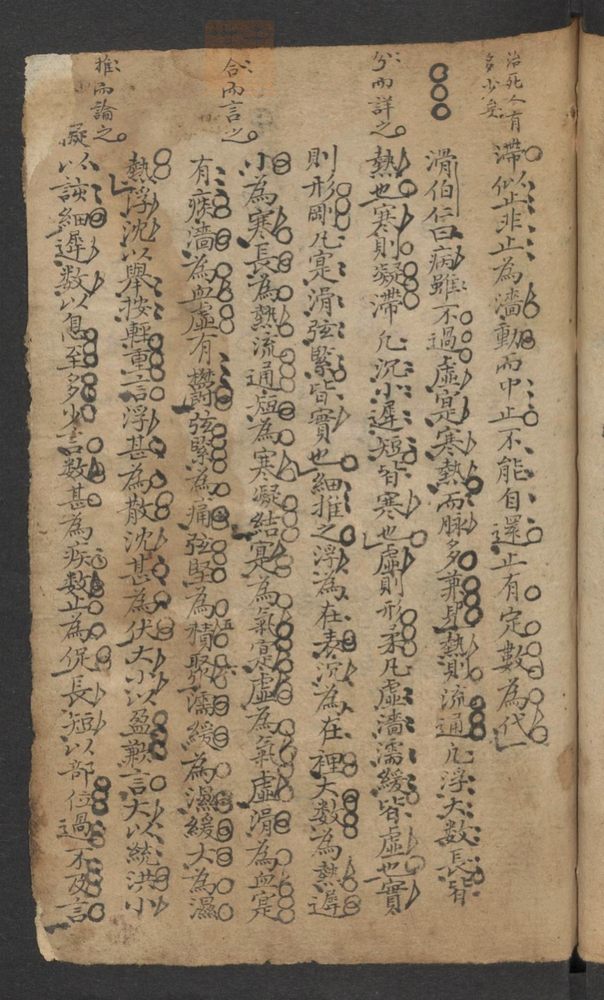 治死人有
多少妄
滯似止非止為濇動而中止不能自還止有定數為代
滑伯仁曰病雖不過虛寔寒熱而脉多兼見熱則流通凢浮大數長皆
分而詳之
熱也寒則凝滯凢沉小遲短皆寒也虛則形柔凢虛濇濡緩皆虛也實
則形剛凢寔滑弦緊皆實也細推之浮為在表沉為在裡大數為熱遲
合而言之
小為寒長為熱流通短為寒凝結寔為氣寔虛為氣虛滑為血寔
有痰濇為血虛有欝弦緊為痛弦堅為積聚濡緩為濕緩大為濕
熱浮沈以舉按輕重言浮甚為散沈甚為伏大小以盈歉言大以統洪小
推而論之
以該細遲数以息至多少言数甚為疾数止為促長短以部位過不及言